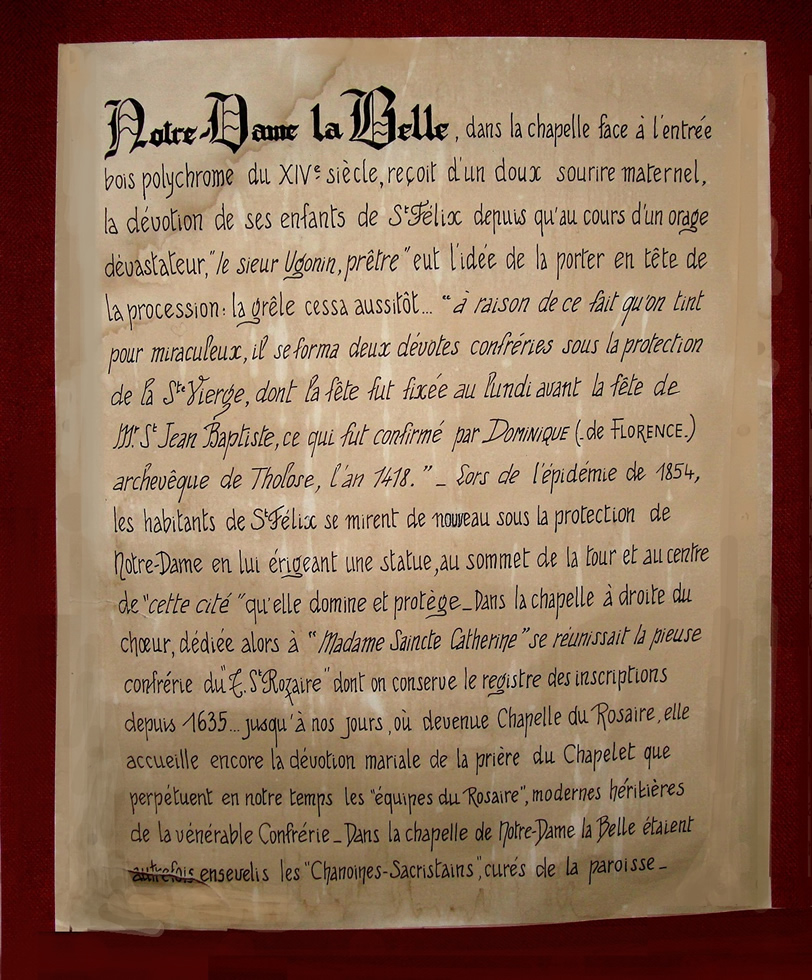 Notre-Dame la Belle, dans la chapelle face à l'entrée
bois polychrome du XIVe siècle, reçoit d'un doux sourire maternel,
la dévotion de ses enfants de St Félix depuis qu'au cours d'un orage
dévastateur, "le sieur Ugonin, prêtre" eut l'idée de la porter en tête de
la procession: la grêle cessa aussitôt... "à raison de ce fait qu'on tint
pour miraculeux, il se forma deux dévotes confréries sous la protection
de la Ste Vierge, dont la fête fut fixée au lundi avant la fête de
Mr St Jean Baptiste, ce qui fut confirmé par DOMINIQUE (de FLORENCE.)
archevêque de Tholose, l'an 1418." _ Lors de l'épidémie de 1854,
les habitants de St Félix se mirent de nouveau sous la protection de
Notre-Dame en lui érigeant une statue, au sommet de la tour et au centre
de "cette cité" qu'elle domine et protège _ Dans la chapelle à droite du
chœur, dédiée alors à "Madame Saincte Catherine" se réunissait la pieuse
confrérie du "T. St Rozaire" dont on conserve le registre des inscriptions
depuis 1635... jusqu'à nos jours, où devenue Chapelle du Rosaire, elle
accueille encore la dévotion mariale de la prière du Chapelet que
perpétuent en notre temps les "équipes du Rosaire", modernes héritières
de la vénérable Confrérie _ Dans la chapelle de Notre-Dame la Belle étaient
autrefois ensevelis les "Chanoines-Sacristains", curés de la paroisse _